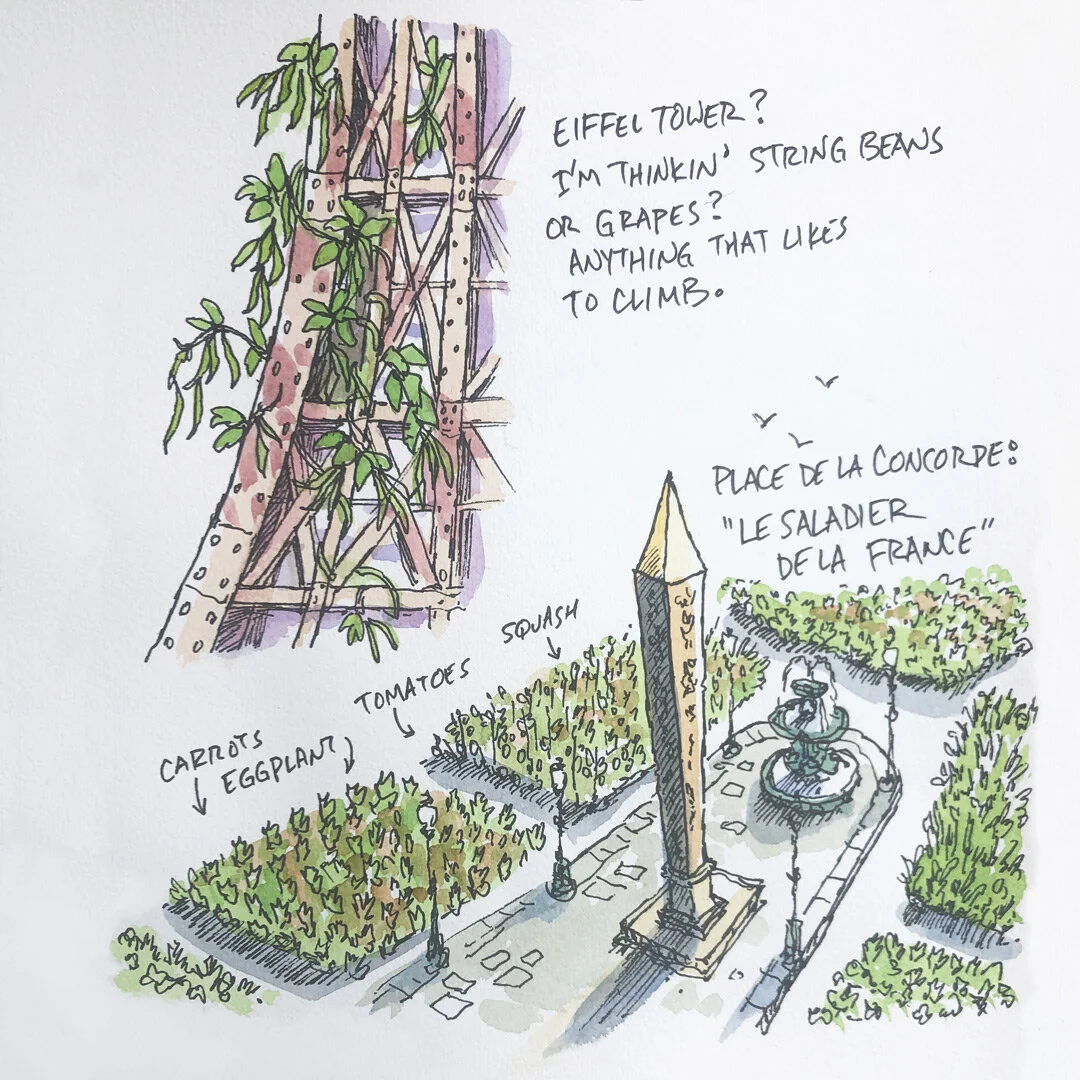 EIFFEL TOWER?
I'M THINKIN' STRING BEANS
OR GRAPES?
ANYTHING THAT LIKES
TO CLIMB.
PLACE DE LA CONCORDE:
"LE SALADIER
DE LA FRANCE"
SQUASH
TOMATOES
CARROTS
EGGPLANT